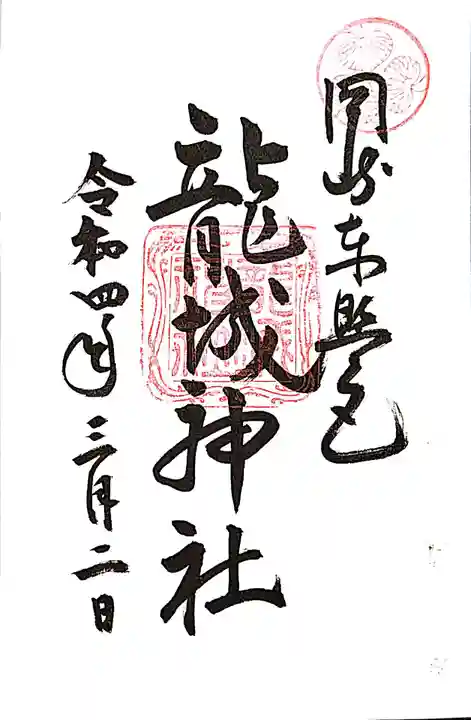 岡崎東照宮
龍城神社
令和四年三月二日